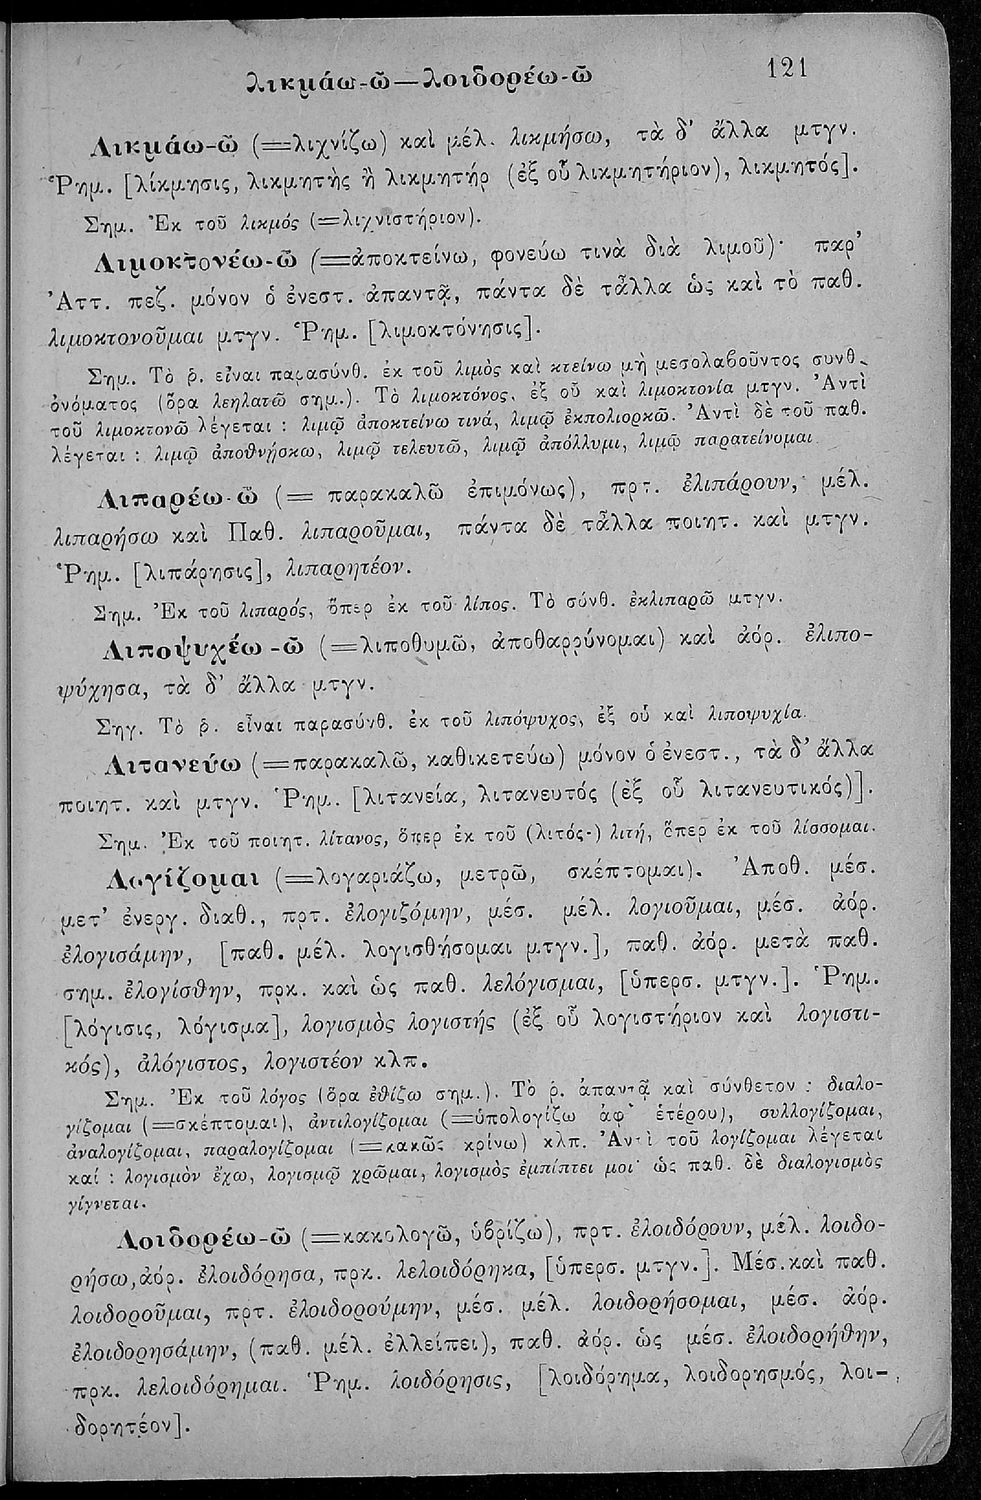 λικμάω-ῶ—λοιδορέω-ῶ 121
Λικμάω-ῶ (=λιχνίζω) καὶ μέλ. λικμήσω, τὰ δ' ἄλλα μτγν.
Ῥημ. [λίκμησις, λικμητὴς ἢ λικμητήρ (ἐξ οὗ λικμητήριον), λικμητός].
Σημ. Ἐκ τοῦ λικμός (=λιχνιστήριον).
Λιμοκτονέω-ῶ (=ἀποκτείνω, φονεύω τινὰ διὰ λιμοῦ)· παρ'
Ἀττ. πεζ. μόνον ὁ ἐνεστ. ἀπαντᾷ, πάντα δὲ τἆλλα ὡς καὶ τὸ παθ.
λιμοκτονοῦμαι μτγν. Ῥημ. [λιμοκτόνησις].
Σημ. Τὸ ῥ. εἶναι παρασύνθ. ἐκ τοῦ λιμὸς καὶ κτείνω μὴ μεσολαβοῦντος συνθ.
ὀνόματος (ὅρα λεηλατῶ σημ.). Τὸ λιμοκτόνος, ἐξ οὗ καὶ λιμοκτονία μτγν. Ἀντὶ
τοῦ λιμοκτονῶ λέγεται : λιμῷ ἀποκτείνω τινά, λιμῷ ἐκπολιορκῶ. Ἀντὶ δὲ τοῦ παθ.
λέγεται : λιμῷ ἀποθνῄσκω, λιμῷ τελευτῶ, λιμῷ ἀπόλλυμι, λιμῷ παρατείνομαι.
Λιπαρέω-ῶ (= παρακαλῶ ἐπιμόνως), πρτ. ἐλιπάρουν, μέλ.
λιπαρήσω καὶ Παθ. λιπαροῦμαι, πάντα δὲ τἆλλα ποιητ. καὶ μτγν.
Ῥημ. [λιπάρησις], λιπαρητέον.
Σημ. Ἐκ τοῦ λιπαρός, ὅπερ ἐκ τοῦ λίπος. Τὸ σύνθ. ἐκλιπαρῶ μτγν.
Λιποψυχέω-ῶ (=λιποθυμῶ, ἀποθαρρύνομαι) καὶ ἀόρ. ἐλιπο-
ψύχησα, τὰ δ' ἄλλα μτγν.
Σηγ. Τὸ ῥ. εἶναι παρασύνθ. ἐκ τοῦ λιπόψυχος, ἐξ οὗ καὶ λιποψυχία.
Λιτανεύω (=παρακαλῶ, καθικετεύω) μόνον ὁ ἐνεστ., τὰ δ' ἄλλα
ποιητ. καὶ μτγν. Ῥημ. [λιτανεία, λιτανευτός (ἐξ οὗ λιτανευτικός)].
Σημ. Ἐκ τοῦ ποιητ. λίτανος, ὅπερ ἐκ τοῦ (λιτός-) λιτή, ὅπερ ἐκ τοῦ λίσσομαι.
Λογίζομαι (=λογαριάζω, μετρῶ, σκέπτομαι). Ἀποθ. μέσ.
μετ' ἐνεργ. διαθ., πρτ. ἐλογιζόμην, μέσ. μέλ. λογιοῦμαι, μέσ. ἀόρ.
ἐλογισάμην, [παθ. μέλ. λογισθήσομαι μτγν.], παθ. ἀόρ. μετὰ παθ.
σημ. ἐλογίσθην, πρκ. καὶ ὡς παθ. λελόγισμαι, [ὑπερσ. μτγν.]. Ῥημ.
[λόγισις, λόγισμα], λογισμὸς λογιστής (ἐξ οὗ λογιστήριον καὶ λογιστι-
κός), ἀλόγιστος, λογιστέον κλπ.
Σημ. Ἐκ τοῦ λόγος (ὅρα ἐθίζω σημ.). Τὸ ῥ. ἀπαντᾷ καὶ σύνθετον : διαλο-
γίζομαι (=σκέπτομαι), ἀντιλογίζομαι (=ὑπολογίζω ἀφ' ἑτέρου), συλλογίζομαι,
ἀναλογίζομαι, παραλογίζομαι (=κακῶς κρίνω) κλπ. Ἀντὶ τοῦ λογίζομαι λέγεται
καί : λογισμὸν ἔχω, λογισμῷ χρῶμαι, λογισμὸς ἐμπίπτει μοι· ὡς παθ. δὲ διαλογισμὸς
γίγνεται.
Λοιδορέω-ῶ (=κακολογῶ, ὑβρίζω), πρτ. ἐλοιδόρουν, μέλ. λοιδο-
ρήσω, ἀόρ. ἐλοιδόρησα, πρκ. λελοιδόρηκα, [ὑπερσ. μτγν.]. Μέσ. καὶ παθ.
λοιδοροῦμαι, πρτ. ἐλοιδορούμην, μέσ. μέλ. λοιδορήσομαι, μέσ. ἀόρ.
ἐλοιδορησάμην, (παθ. μέλ. ἐλλείπει), παθ. ἀόρ. ὡς μέσ. ἐλοιδορήθην,
πρκ. λελοιδόρημαι. Ῥημ. λοιδόρησις, [λοιδόρημα, λοιδορησμός, λοι-
δορητέον].